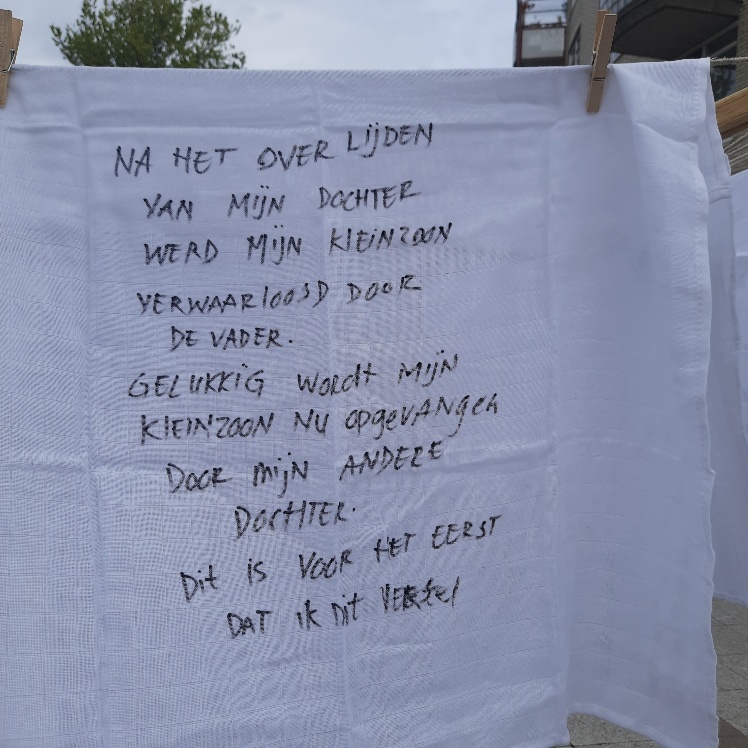 NA HET OVERLIJDEN
VAN MIJN DOCHTER
WERD MIJN KLEINZOON
VERWAARLOOSD DOOR
DE VADER.
GELUKKIG WORDT MIJN
KLEINZOON NU OPGEVANGEN
DOOR MIJN ANDERE
DOCHTER.
Dit is VOOR HET EERST
DAT iK Dit VERtel